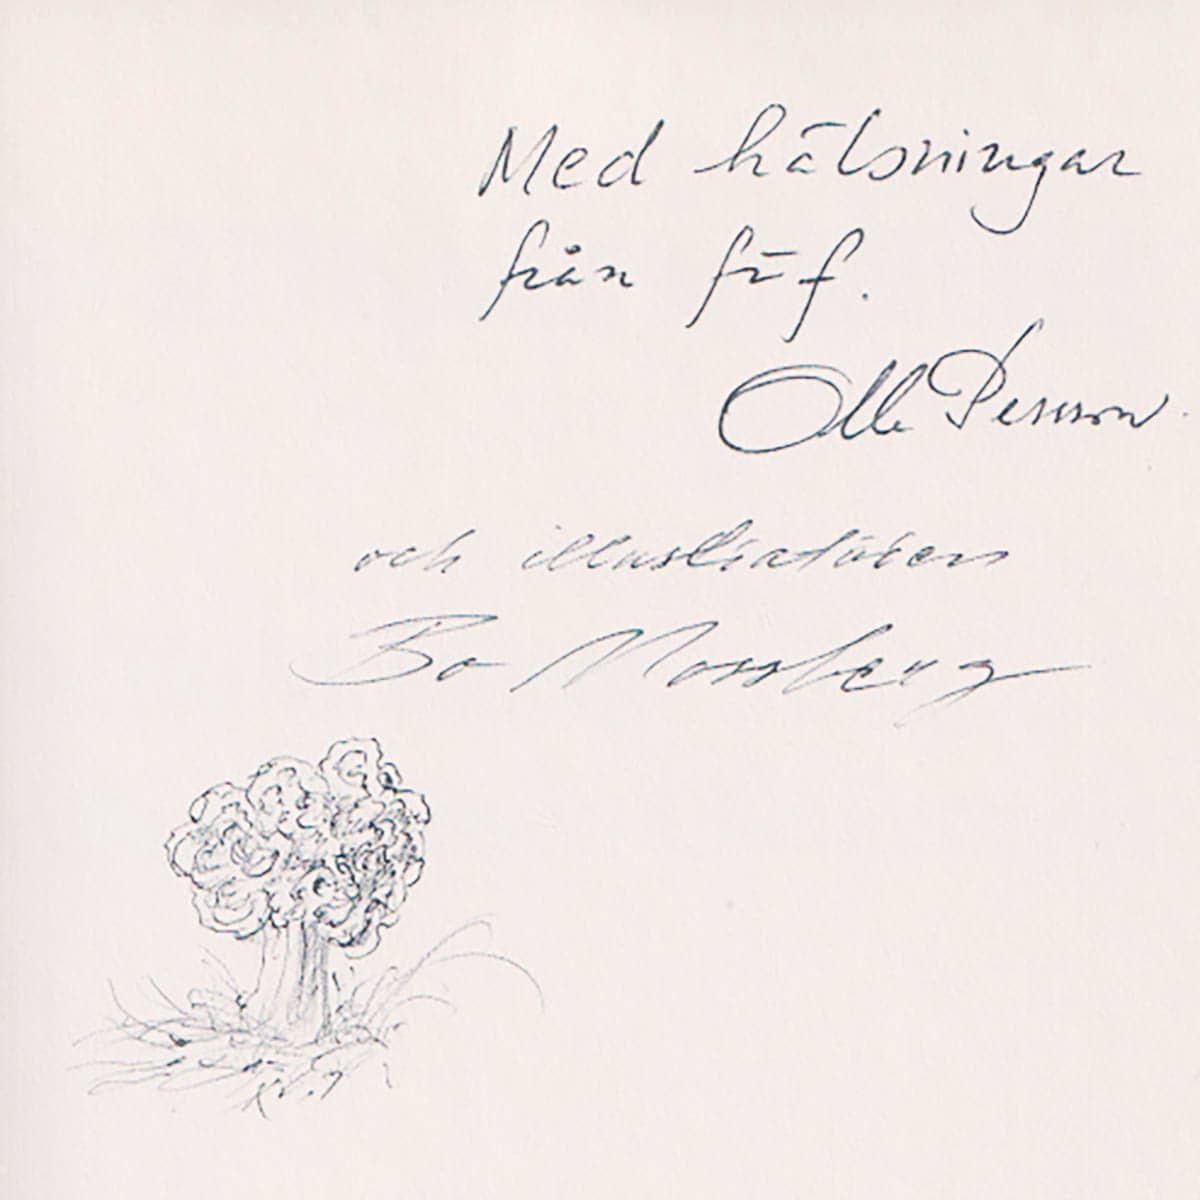 Med hälsningar
från förf.
Olle Persson.
och illustratören
Bo Mossberg